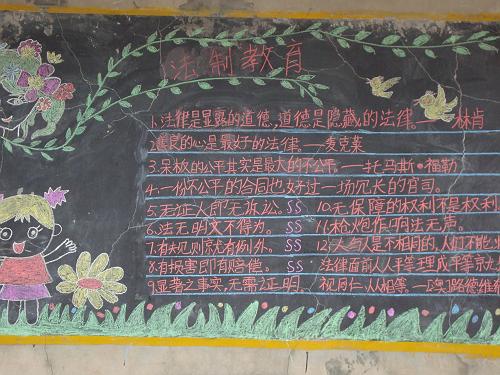 法制教育
1.法律是显露的道德,道德是隐藏的法律。——林肯
2.善良的心是最好的法律。——麦克莱
3.呆板的公平其实是最大的不公平。——托马斯·福勒
4.一份不公平的合同也好过一场冗长的官司。
5.无证人即无诉讼。SS 10.无保障的权利不是权利
6.法无明文不得为。SS 11.枪炮作响法无声。
7.有规则就有例外。SS 12.人与人是不相同的,人们不能
8.有损害即有赔偿。SS 法律面前人人平等
9.显著之事实,无需证明、 视同仁